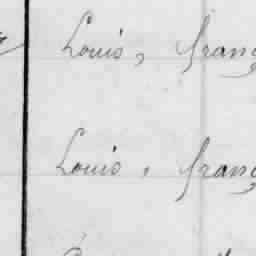 Louis, franç
Louis, franç